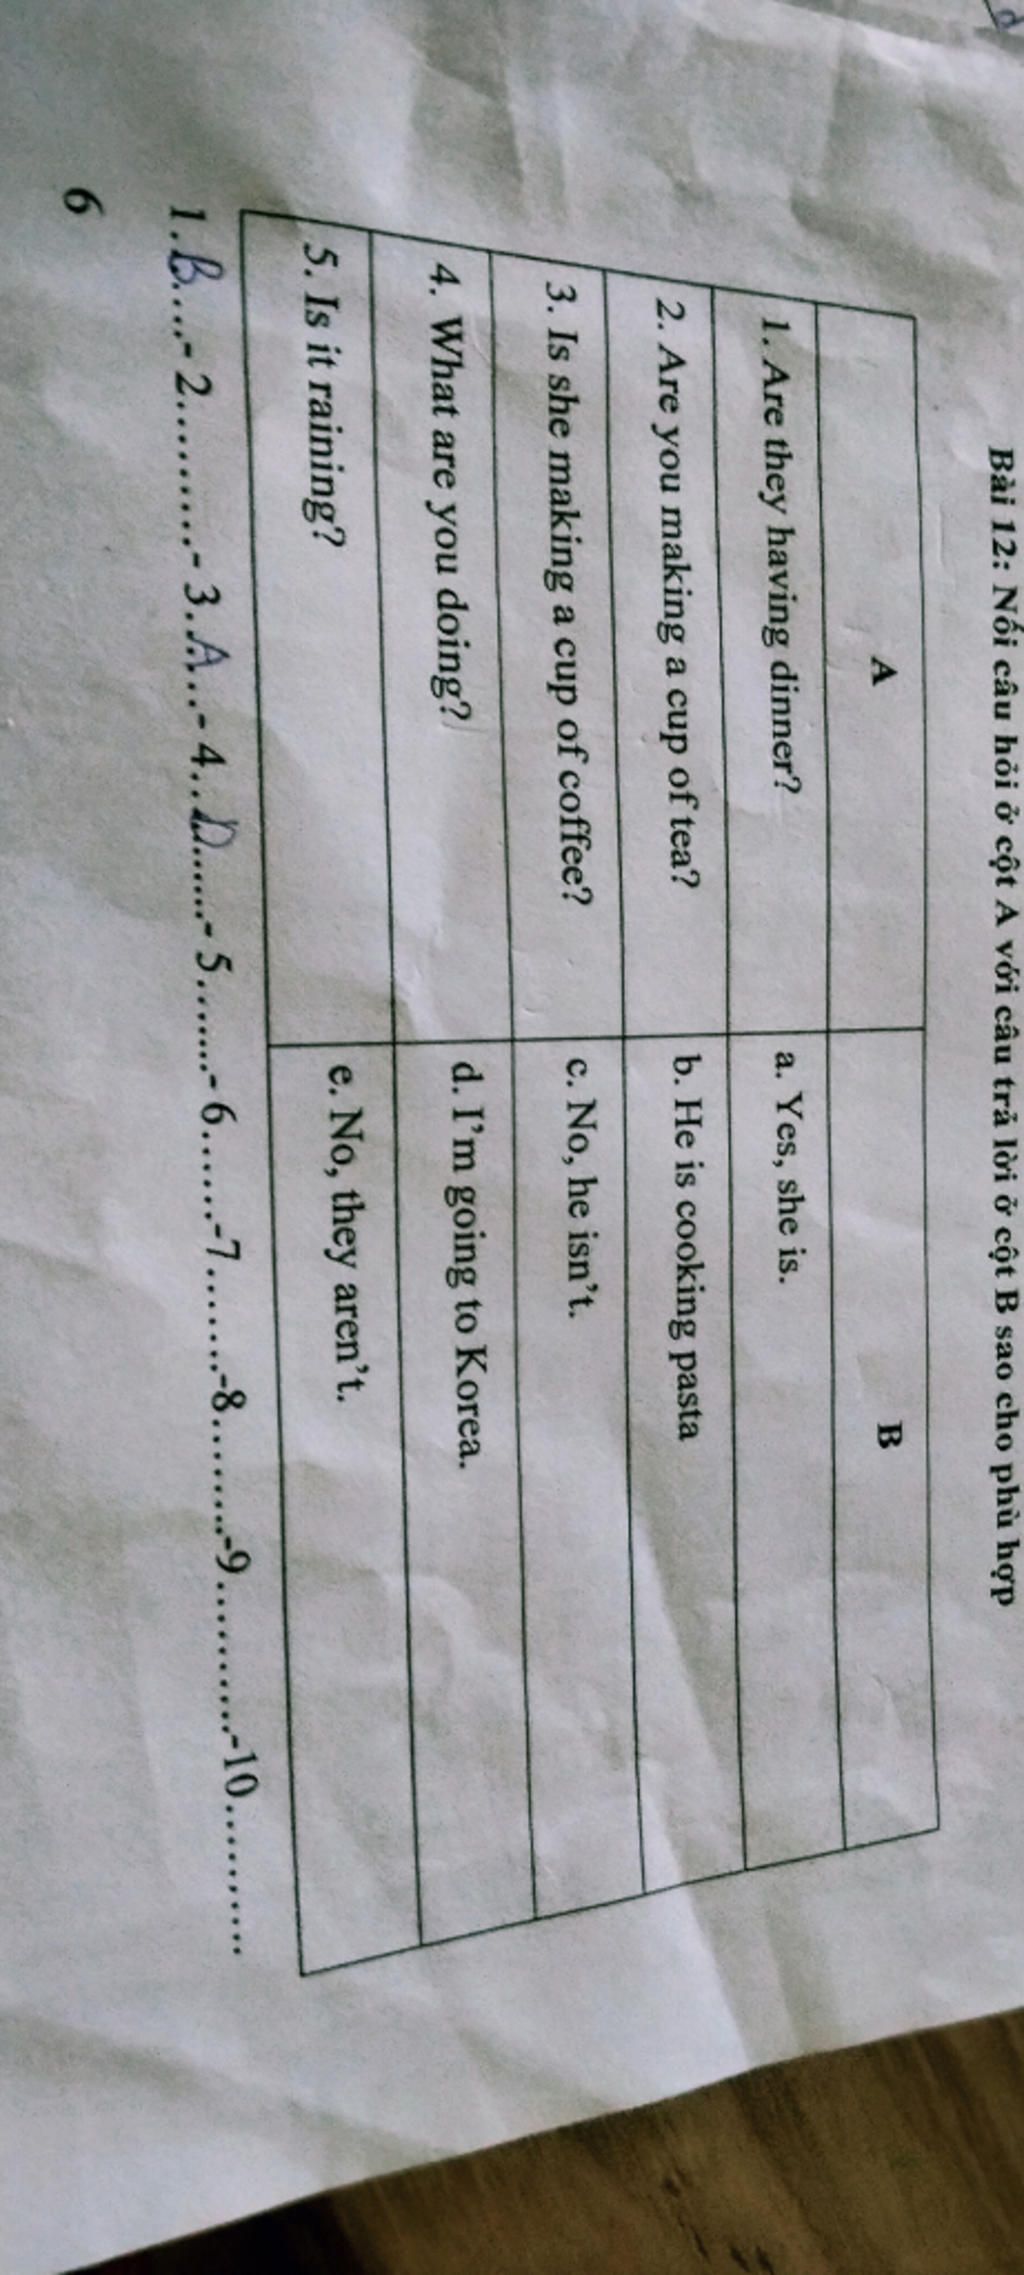 Bài 12: Nối câu hỏi ở cột A với câu trả lời ở cột B sao cho phù hợp
A B
1. Are they having dinner? a. Yes, she is.
2. Are you making a cup of tea? b. He is cooking pasta
3. Is she making a cup of coffee? c. No, he isn't.
4. What are you doing? d. I'm going to Korea.
5. Is it raining? e. No, they aren't.
1.B....- 2.........- 3.A...- 4..D......- 5.......- 6......-7.......-8........-9...........-10..........
6